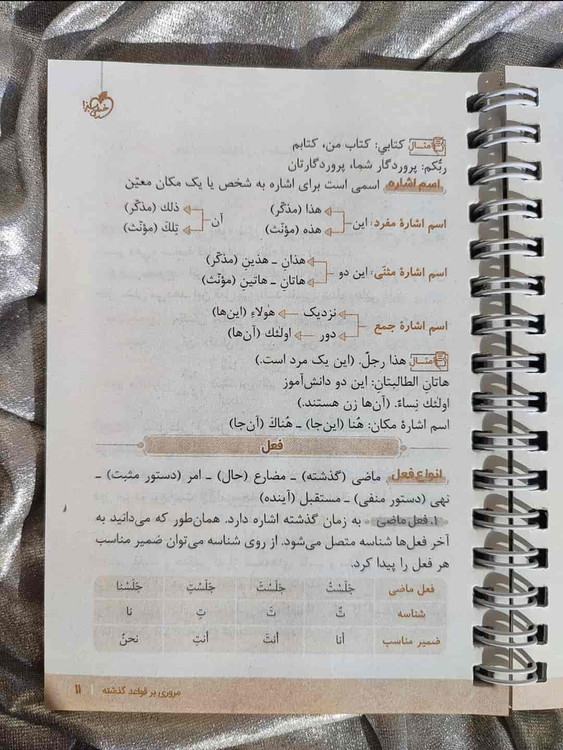 خیلی سبز
مثال کتابي: کتاب من، کتابم
ربُّکم: پروردگار شما، پروردگارتان
اسم اشاره اسمی است برای اشاره به شخص یا یک مکان معیّن
اسم اشارهٔ مفرد: این هذا (مذکّر) هذه (مؤنّث) آن ذلك (مذکّر) تِلكَ (مؤنّث)
اسم اشارهٔ مثنّی: این دو هذانِ ـ هذَینِ (مذکّر) هاتانِ ـ هاتَینِ (مؤنّث)
اسم اشارهٔ جمع نزدیک هولاءِ (این‌ها) دور اولئك (آن‌ها)
مثال هذا رجلٌ. (این یک مرد است.)
هاتانِ الطالبتانِ: این دو دانش‌آموز
اولئك نِساءٌ. (آن‌ها زن هستند.)
اسم اشارهٔ مکان: هُنا (این‌جا) ـ هُناكَ (آن‌جا)
فعل
انواع فعل ماضی (گذشته) ـ مضارع (حال) ـ امر (دستور مثبت) ـ
نهی (دستور منفی) ـ مستقبل (آینده)
۱. فعل ماضی به زمان گذشته اشاره دارد. همان‌طور که می‌دانید به
آخر فعل‌ها شناسه متصل می‌شود. از روی شناسه می‌توان ضمیر مناسب
هر فعل را پیدا کرد.
فعل ماضی جَلَسْتُ جَلَسْتَ جَلَسْتِ جَلَسْنا
شناسه تُ تَ تِ نا
ضمیر مناسب أنا أنتَ أنتِ نحنُ
مروری بر قواعد گذشته | ۱۱